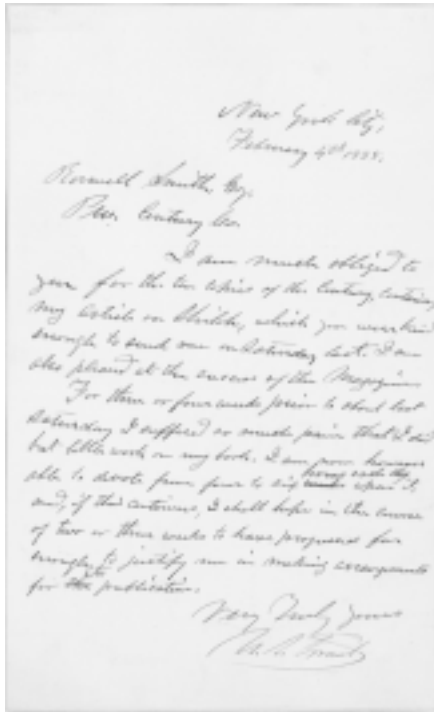 New York City,
February 4th 1885.
Roswell Smith, Esq.
Pres. Century Co.
I am much obliged to
you for the ten copies of the Century, containing
my article on Shiloh, which you were kind
enough to send me on Saturday last. I am
also pleased at the success of the Magazine
For three or four weeks prior to about last
Saturday I suffered so much pain that I did
but little work on my book. I am now however
able to devote from four to six hours each day upon it,
and, if this continues, I shall hope in the course
of two or three weeks to have progressed far
enough to justify me in making arrangements
for its publication.
Very Truly yours
U. S. Grant